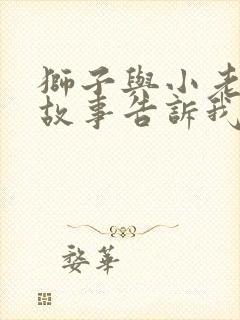 獅子與小老
故事告訴我
婺華